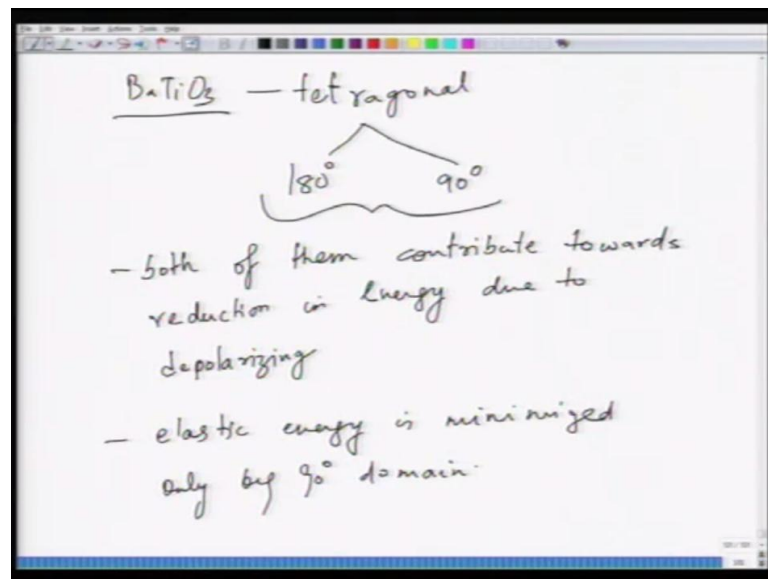 BaTiO3 — tetragonal
180° 90°
- both of them contribute towards
reduction in Energy due to
depolarizing
- elastic energy is minimized
only by 90° domain.